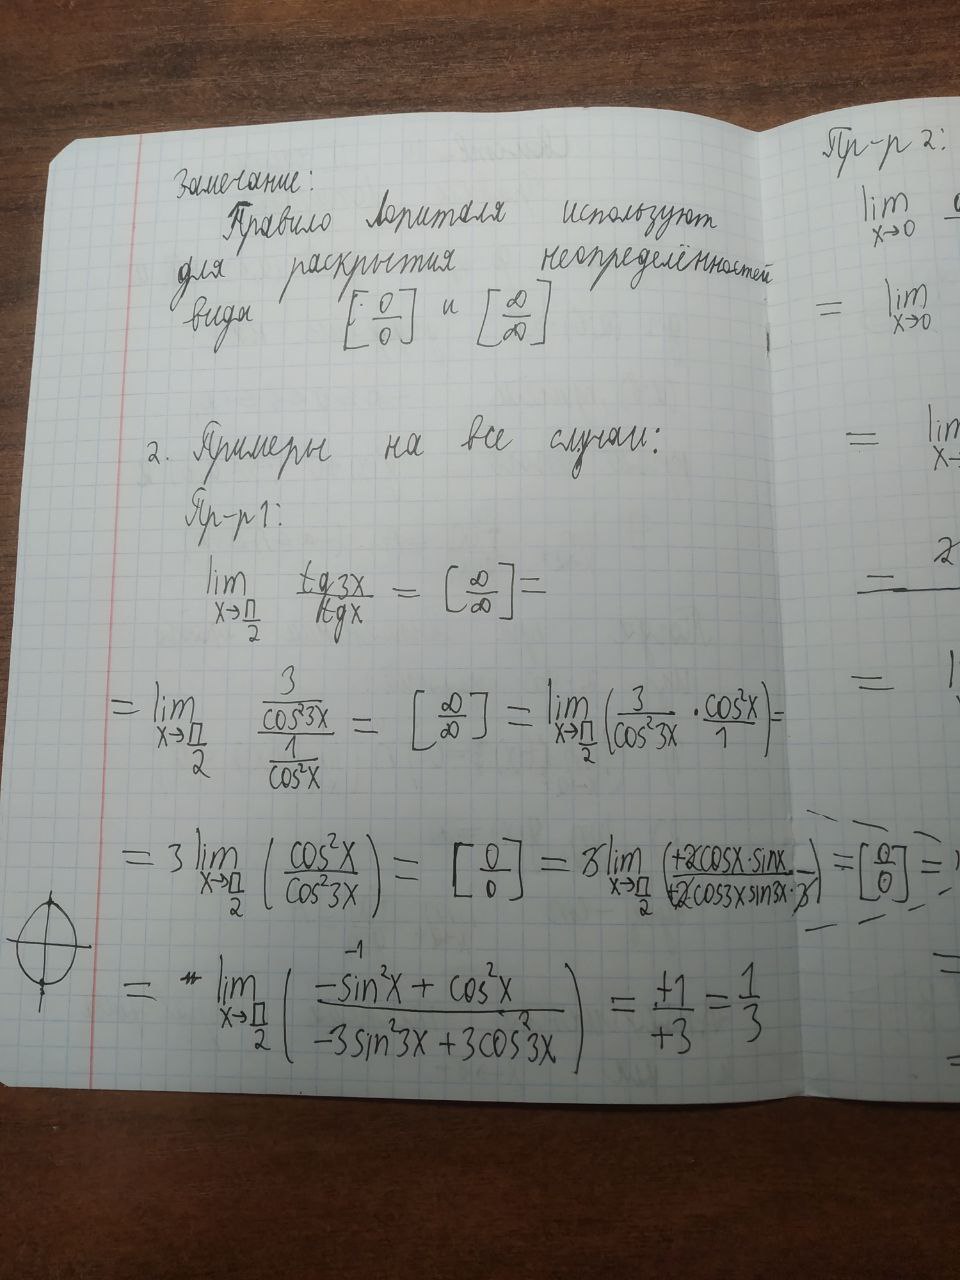 Замечание:
Правило Лопиталя используют
для раскрытия неопределённостей
вида [0/0] и [∞/∞]
2. Примеры на все случаи:
Пр-р 1:
lim x→П/2 tg3x/tgx = [∞/∞] =
= lim x→П/2 (3/cos²3x)/(1/cos²x) = [∞/∞] = lim x→П/2 (3/cos²3x · cos²x/1) =
= 3 lim x→П/2 (cos²x/cos²3x) = [0/0] = 3 lim x→П/2 (+2cosx·sinx/+2cos3x sin3x·3) = [0/0] =
= lim x→П/2 (-sin²x + cos²x/-3sin²3x + 3cos²3x) = +1/+3 = 1/3
-1
Пр-р 2:
lim x→0
= lim x→0
= lim
= 2
=